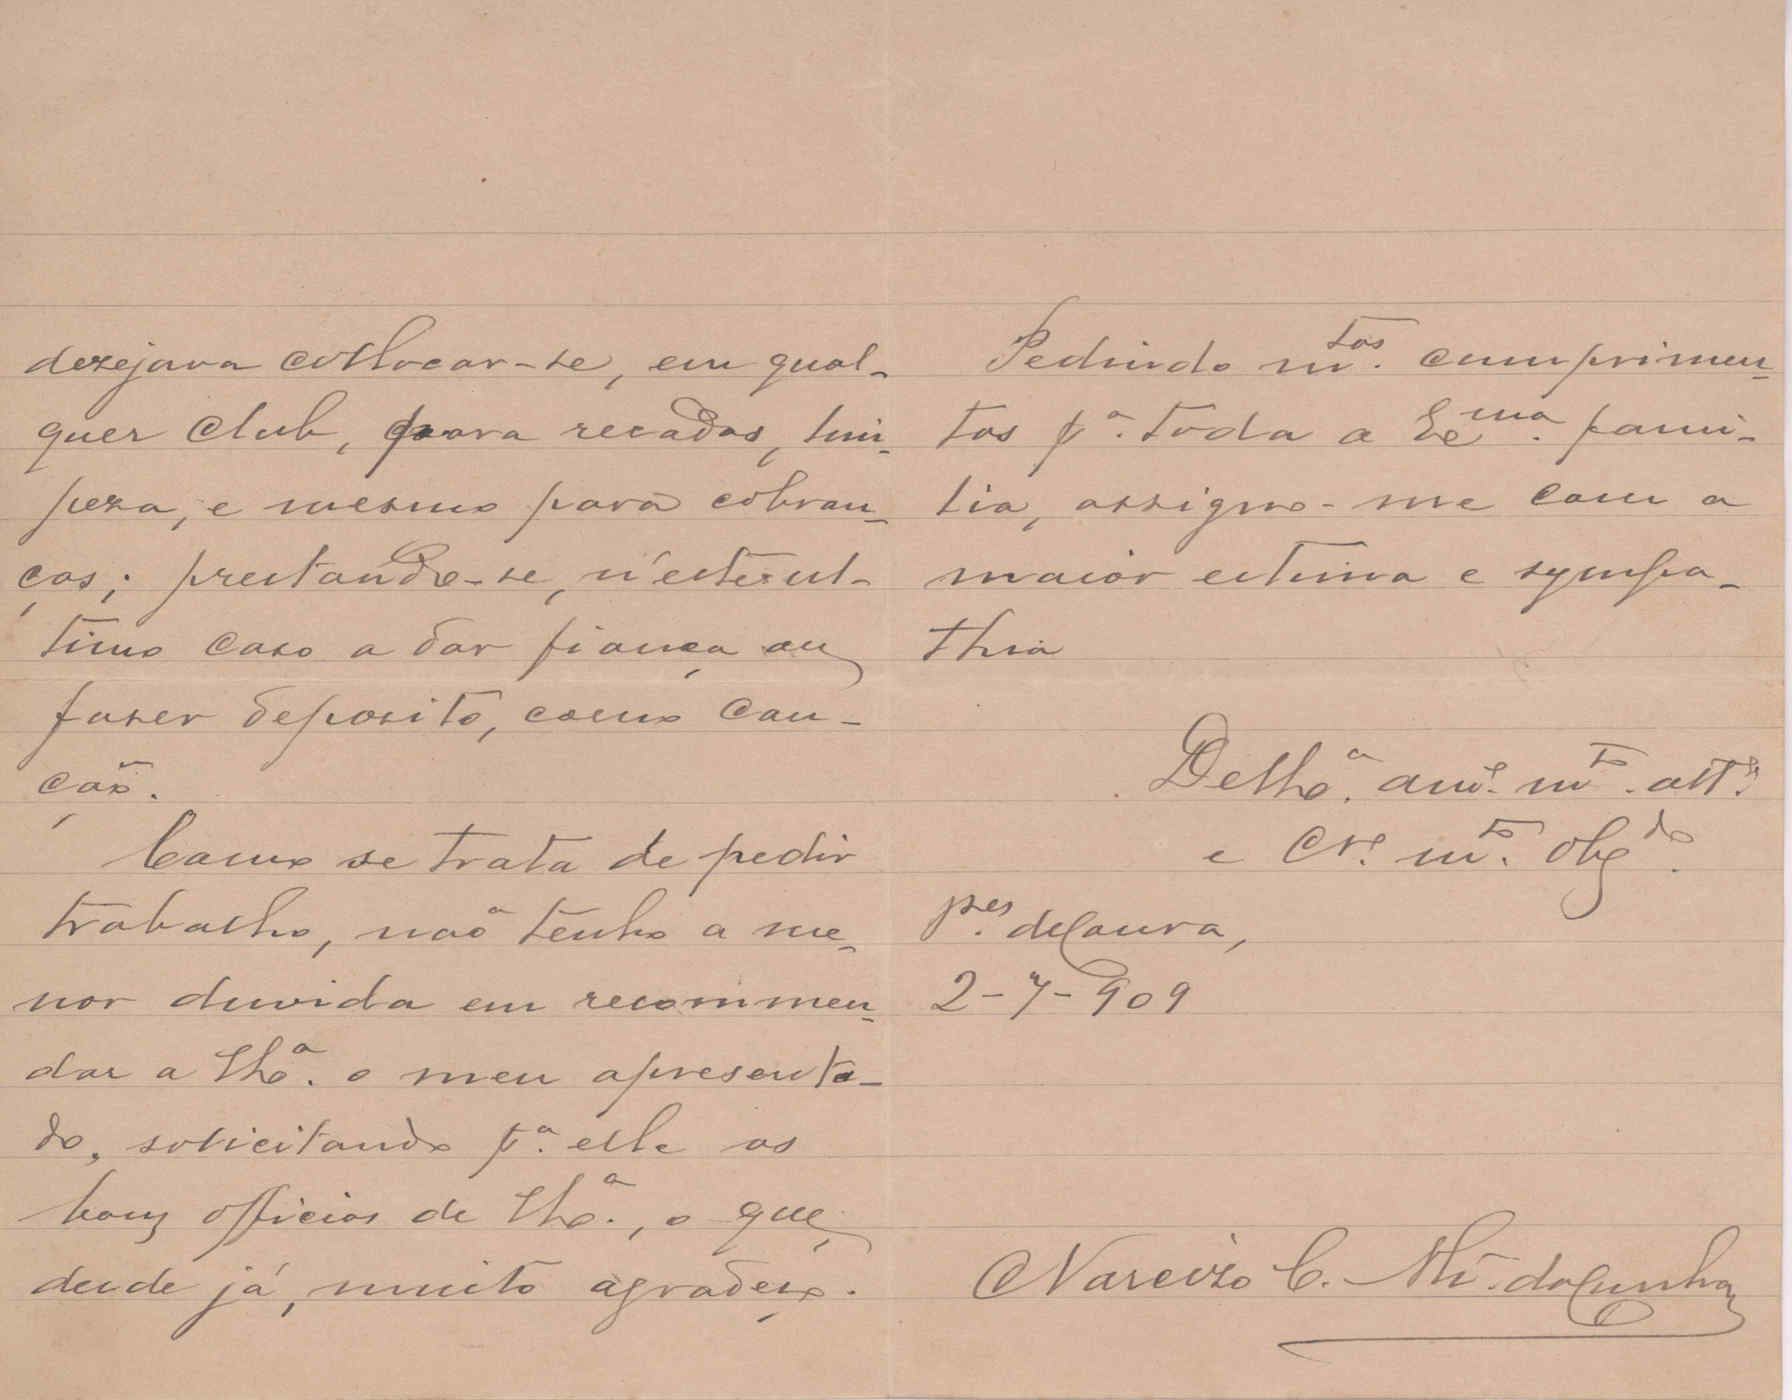 dezejava collocar-se, em qual-
quer club, para recados, lim-
peza, e mesmo para cobran-
ças; prestando-se, n'este ul-
timo caso a dar fiança ou
fazer deposito, como cau-
ção.
Como se trata de pedir
trabalho, não tenho a me-
nor duvida em recommen-
dar a Vª. o meu apresenta-
do, solicitando pª. elle os
bons officios de Vª., o que,
desde já, muito agradeço.
Pedindo mtos. cumprimen-
tos pª. toda a Exma. fami-
lia, assigno-me com a
maior estima e sympa-
thia
De amº. mto. attº.
e crº. mto. obgdo.
Pes. de Coura,
2-7-909
Narcizo C. Alz. da Cunha